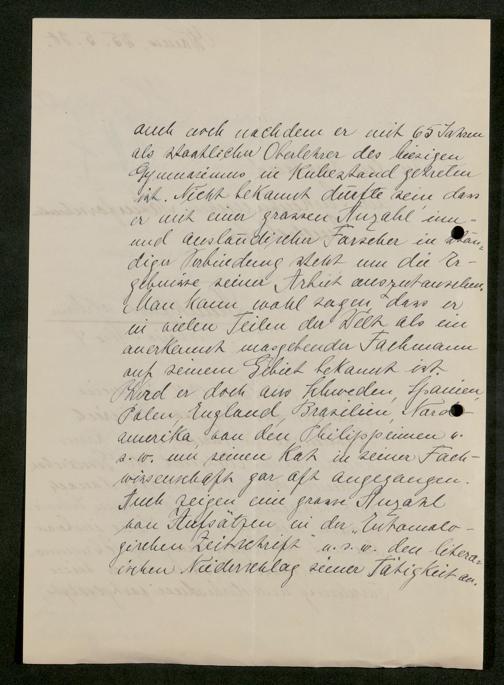 auch noch nachdem er mit 65 Jahren
als staatlicher Oberlehrer des hiesigen
Gymnasiums, in Ruhestand getreten
ist. Nicht bekannt dürfte sein dass
er mit einer grossen Anzahl inn-
und ausländischer Forscher in stän-
diger Verbindung steht um die Er-
gebnisse seiner Arbeit auszutauschen.
Man kann wohl sagen, dass er
in vielen Teilen der Welt als ein
anerkannt massgebender Fachmann
auf seinem Gebiet bekannt ist.
Wird er doch aus Schweden, Spanien,
Polen, England, Brasilien, Nord-
amerika von den Philippeinen u.
s. w. um seinen Rat in seiner Fach-
wissenschaft gar oft angegangen.
Auch zeigen eine grosse Anzahl
von Aufsätzen in der „Entomolo-
gischen Zeitschrift" u. s. w. den litera-
ischen Niederschlag seiner Tätigkeit an.